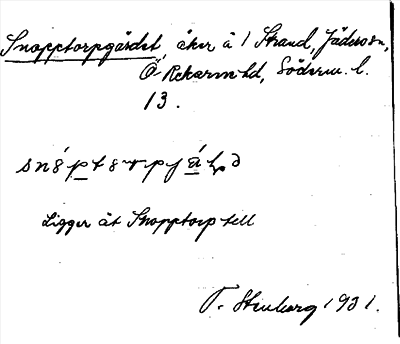 Snopptorpgärdet, åker å 1 Strand, Jäders sn,
Ö Rekarne hd, Söderm. l.
13.
Ligger åt Snopptorp till
T. Stenberg 1931.